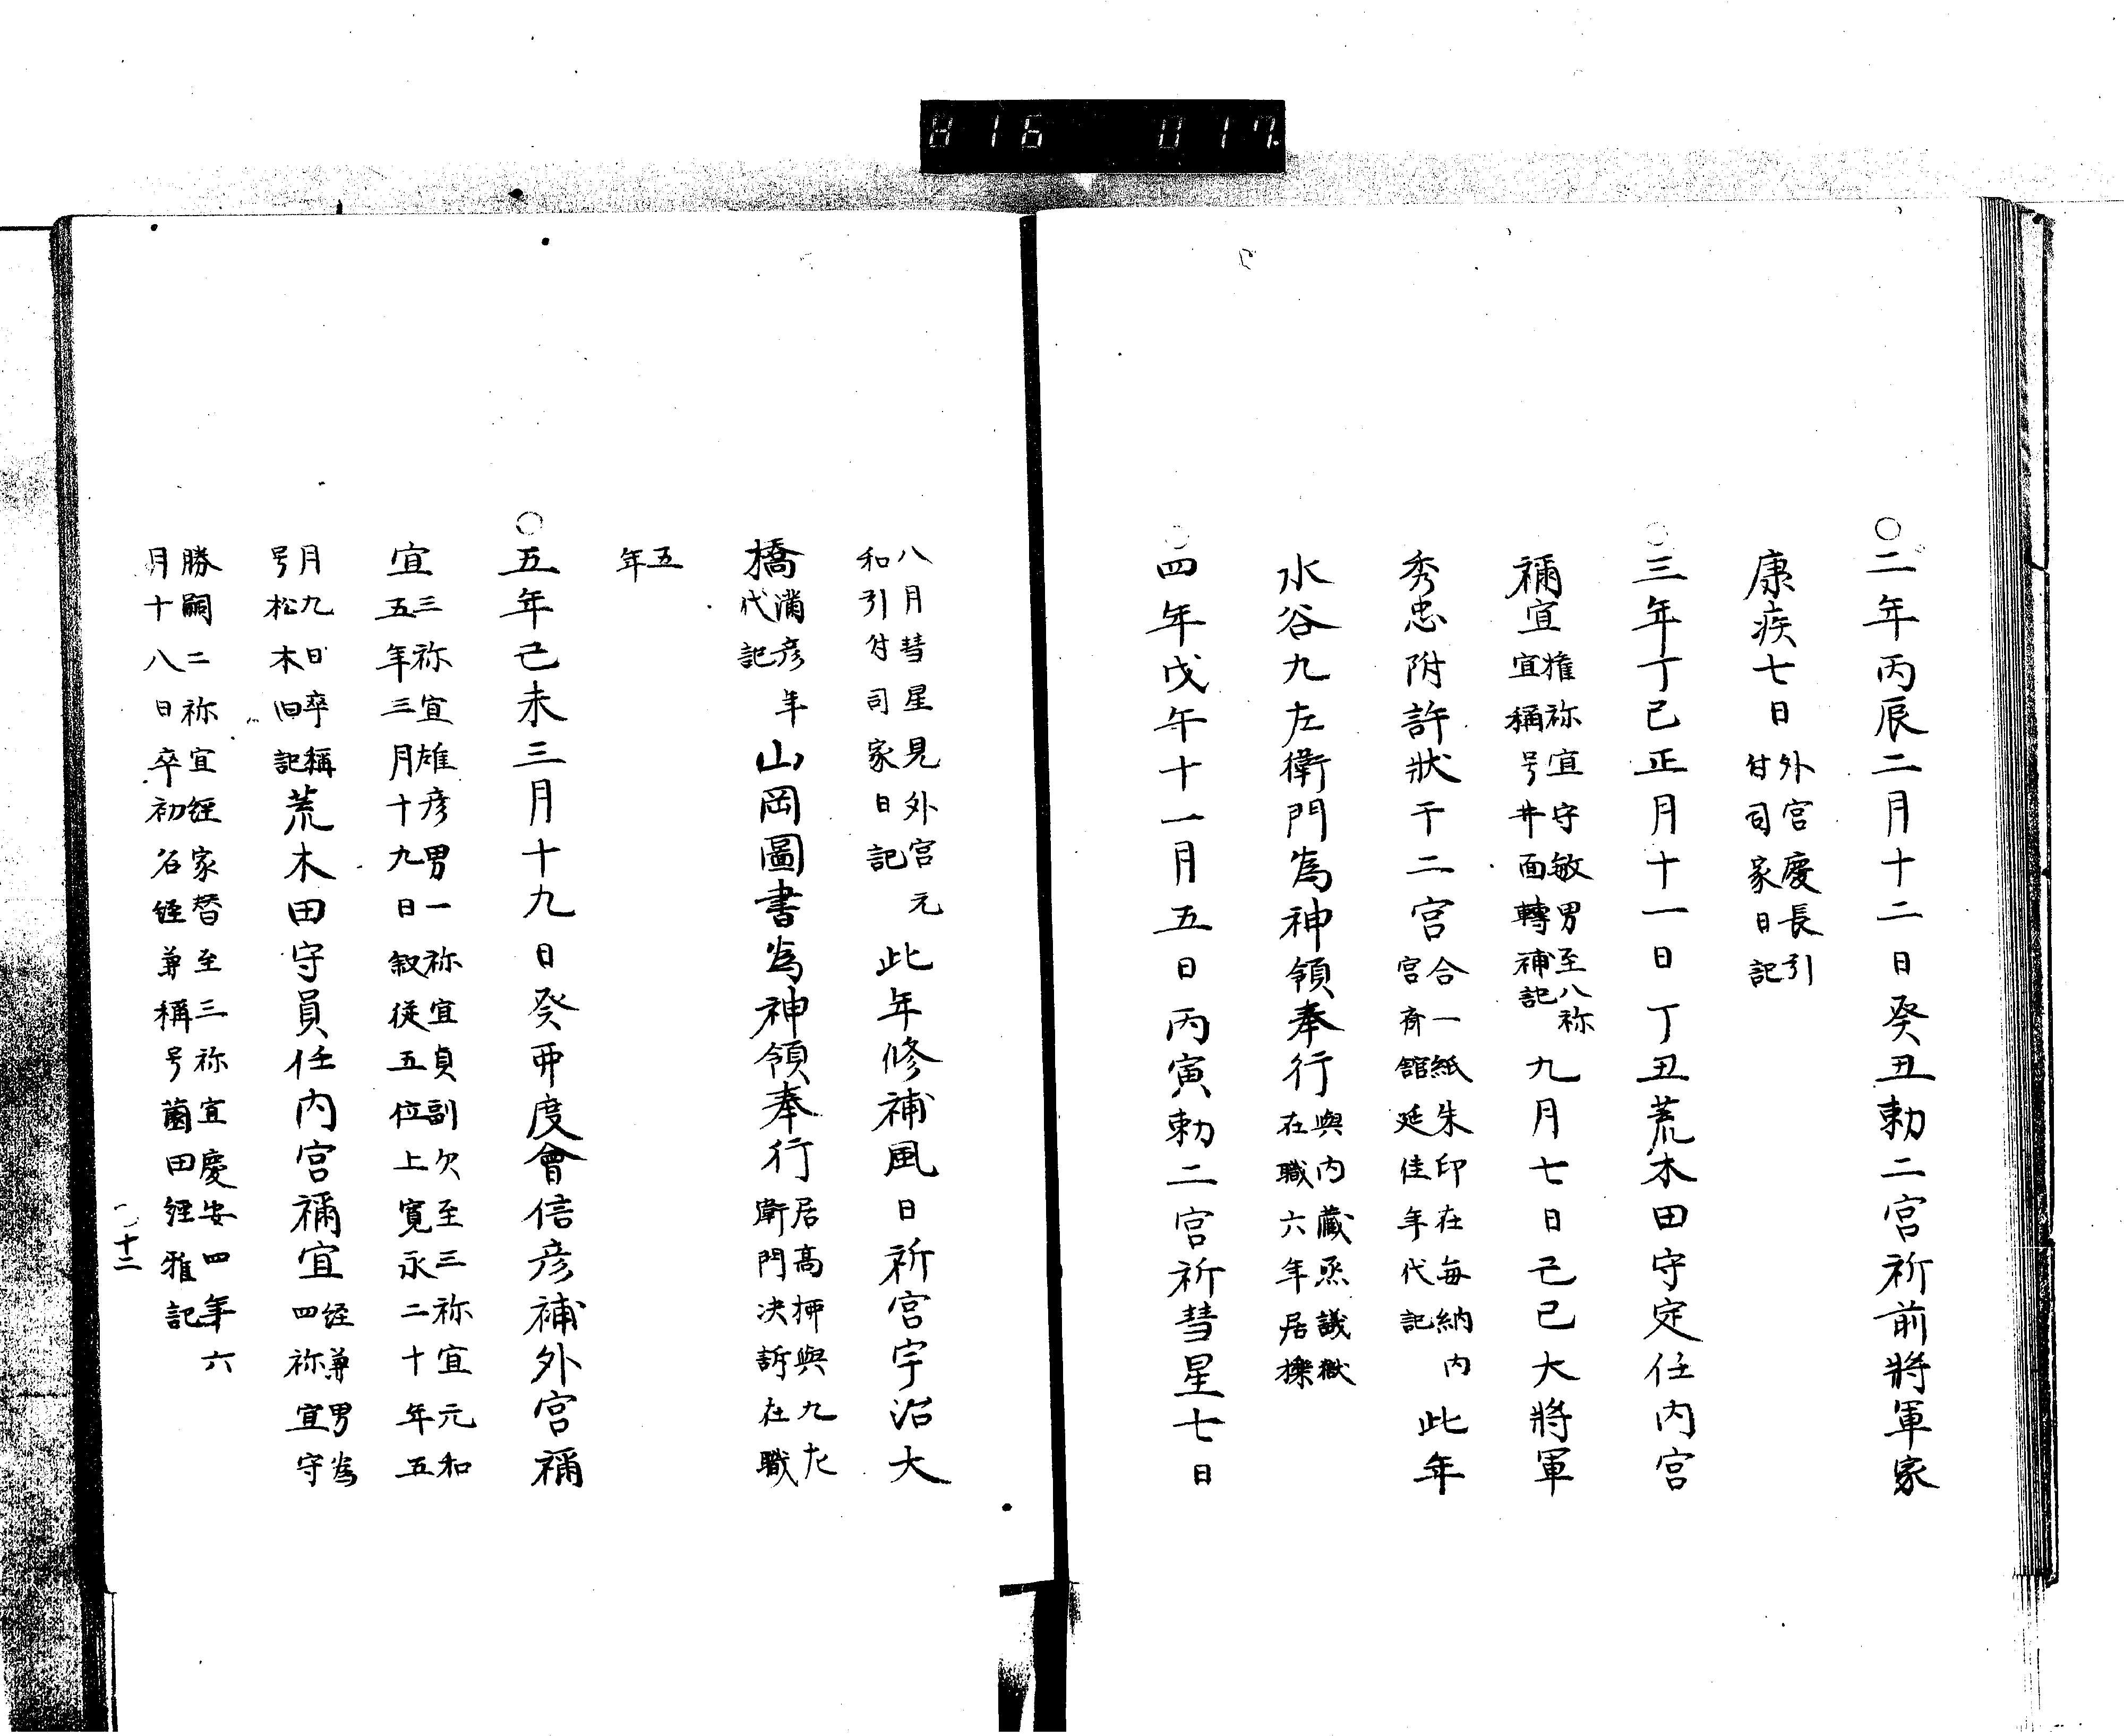 816 017
〇二年丙辰二月十二日癸丑勅二宮祈前將軍家
康疾七日
外宮慶長引
付司家日記
〇三年丁巳正月十一日丁丑荒木田守定任内宮
禰宜
權祢宜守敏男至八祢
宜稱号井面轉補記
九月七日己巳大將軍
秀忠附許狀于二宮
合一紙朱印在每納内
宮斉館延佳年代記
此年
水谷九左衛門為神領奉行
與内藏丞議獄
在職六年居檪
〇四年戊午十一月五日丙寅勅二宮祈彗星七日
八月彗星見外宮元
和引付司家日記
此年修補風日祈宮宇治大
橋
滿彦年
代記
山岡圖書為神領奉行
居高柳與九左
衛門決訴在職
五
年
〇五年己未三月十九日癸酉度會信彦補外宮禰
宜
三祢宜雄彦男一祢宜貞副欠至三祢宜元和
五年三月十九日叙従五位上寛永二十年五
月九日卒稱
号松木旧記
荒木田守員任内宮禰宜
経尊男為
四祢宜守
勝嗣二祢宜経家替至三祢宜慶安四年六
月十八日卒初名経尊稱号薗田経雅記
十二